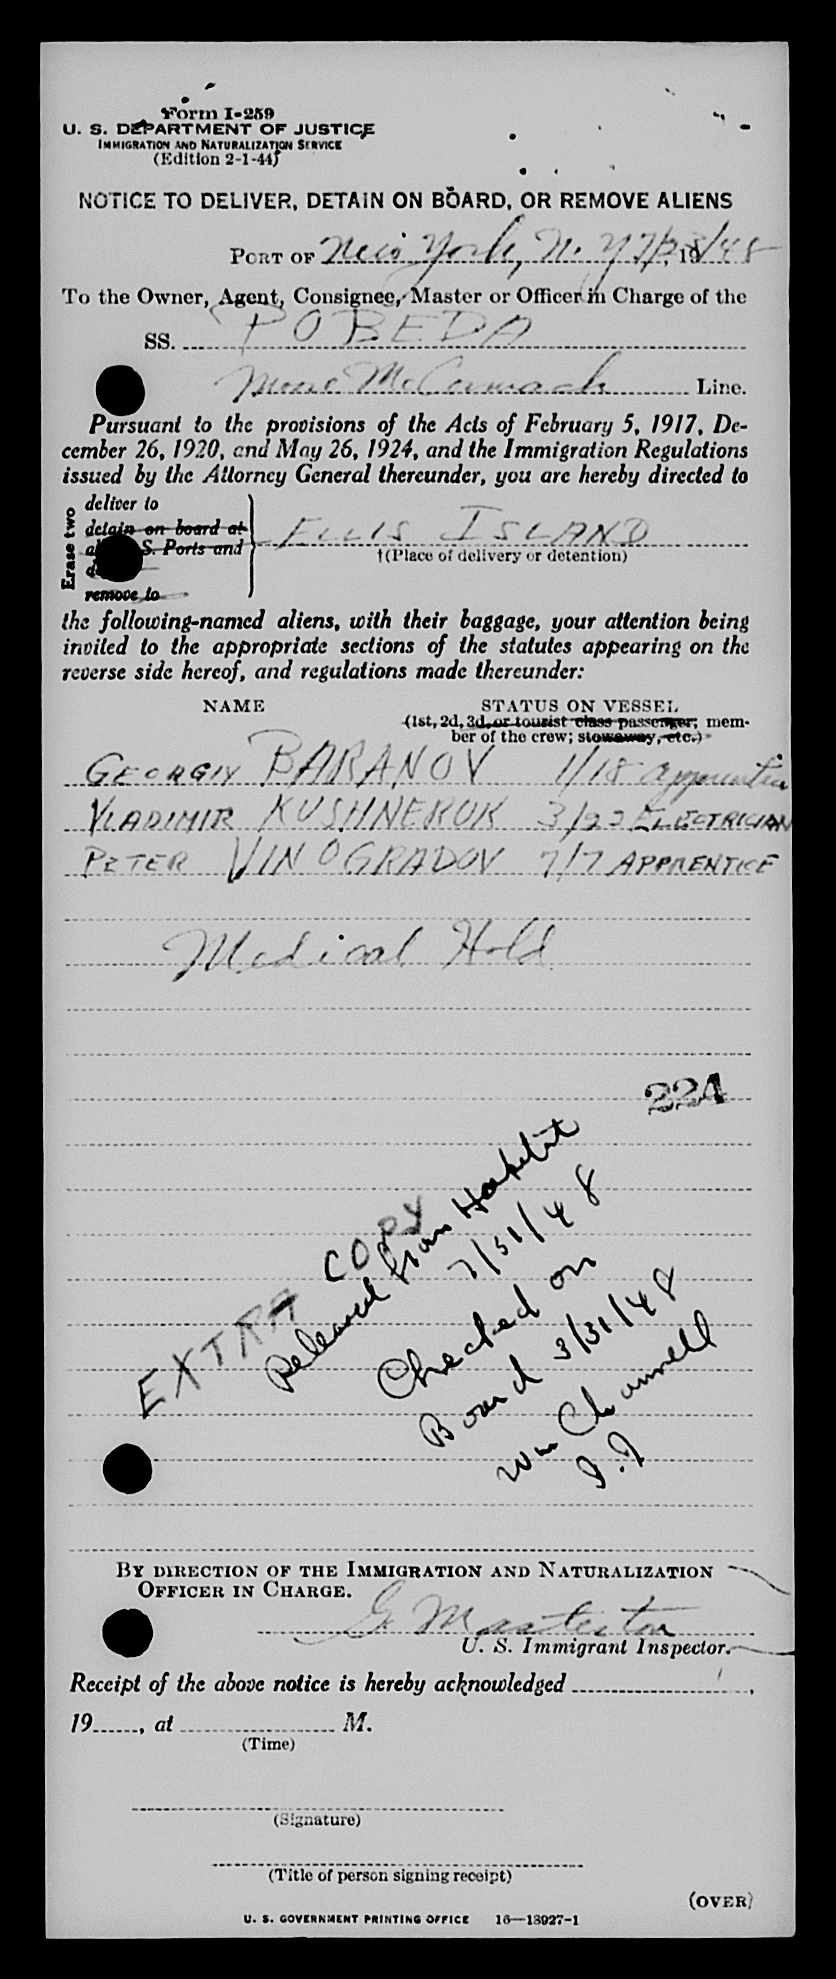 Form I-259
U. S. DEPARTMENT OF JUSTICE
IMMIGRATION AND NATURALIZATION SERVICE
(Edition 2-1-44)
NOTICE TO DELIVER, DETAIN ON BOARD, OR REMOVE ALIENS
PORT OF New York, N. Y 7/28, 19/48
To the Owner, Agent, Consignee, Master or Officer in Charge of the
SS. POBEDA
Moore McCormack Line.
Pursuant to the provisions of the Acts of February 5, 1917, De-
cember 26, 1920, and May 26, 1924, and the Immigration Regulations
issued by the Attorney General thereunder, you are hereby directed to
Erase two
deliver to
detain on board at
S. Ports and
remove to
ELLIS ISLAND
†(Place of delivery or detention)
the following-named aliens, with their baggage, your attention being
invited to the appropriate sections of the statutes appearing on the
reverse side hereof, and regulations made thereunder:
NAME STATUS ON VESSEL
(1st, 2d, 3d, or tourist class passenger; mem-
ber of the crew; stowaway, etc.)
GEORGIY BARANOV 1/18 apprentice
VLADIMIR KUSHNERUK 3/22 ELECTRICIAN
PETER VINOGRADOV 7/7 APPRENTICE
Medical Hold
224
EXTRA COPY
Released from Hospital
7/31/48
Checked on
Board 3/31/48
Wm Channell
I.I
BY DIRECTION OF THE IMMIGRATION AND NATURALIZATION
OFFICER IN CHARGE.
G Masterton
U. S. Immigrant Inspector.
Receipt of the above notice is hereby acknowledged ,
19 , at M.
(Time)
(Signature)
(Title of person signing receipt)
(OVER)
U. S. GOVERNMENT PRINTING OFFICE 16—13927-1